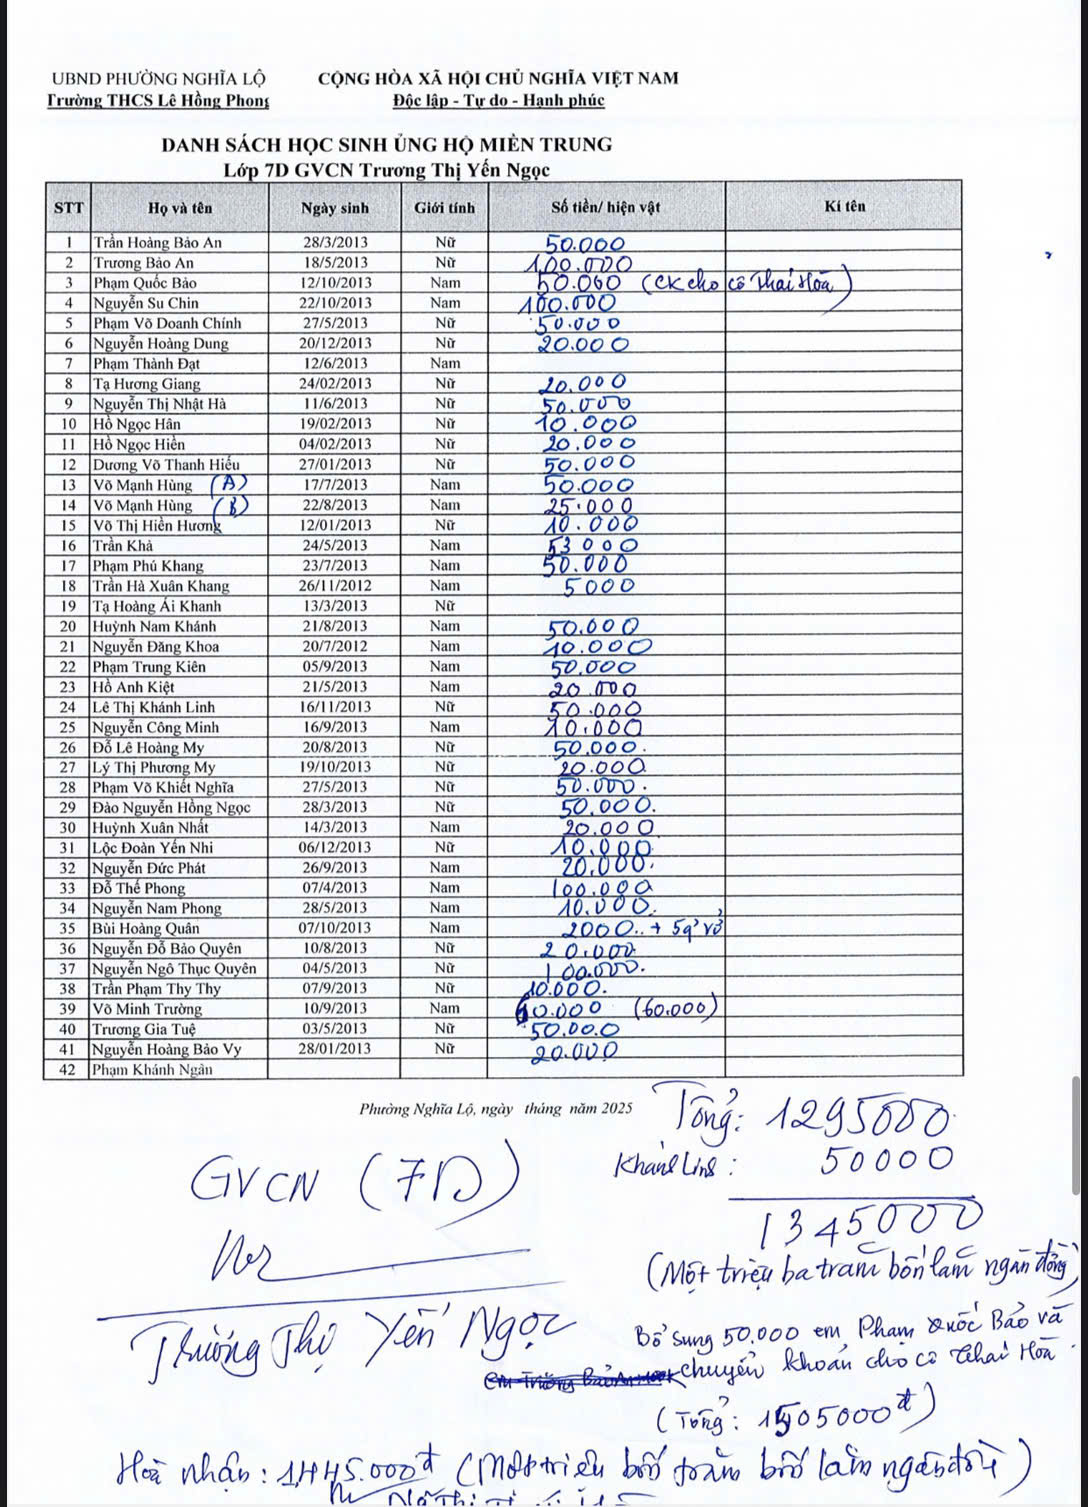 UBND PHƯỜNG NGHĨA LỘ CỘNG HÒA XÃ HỘI CHỦ NGHĨA VIỆT NAM
Trường THCS Lê Hồng Phong Độc lập - Tự do - Hạnh phúc
DANH SÁCH HỌC SINH ỦNG HỘ MIỀN TRUNG
Lớp 7D GVCN Trương Thị Yến Ngọc
STT Họ và tên Ngày sinh Giới tính Số tiền/ hiện vật Kí tên
1 Trần Hoàng Bảo An 28/3/2013 Nữ 50.000
2 Trương Bảo An 18/5/2013 Nữ 100.000
3 Phạm Quốc Bảo 12/10/2013 Nam 50.000 (CK cho cô Thai Hoà)
4 Nguyễn Su Chin 22/10/2013 Nam 100.000
5 Phạm Võ Doanh Chính 27/5/2013 Nữ 50.000
6 Nguyễn Hoàng Dung 20/12/2013 Nữ 20.000
7 Phạm Thành Đạt 12/6/2013 Nam
8 Tạ Hương Giang 24/02/2013 Nữ 20.000
9 Nguyễn Thị Nhật Hà 11/6/2013 Nữ 50.000
10 Hồ Ngọc Hân 19/02/2013 Nữ 10.000
11 Hồ Ngọc Hiền 04/02/2013 Nữ 20.000
12 Dương Võ Thanh Hiếu 27/01/2013 Nữ 50.000
13 Võ Mạnh Hùng (A) 17/7/2013 Nam 50.000
14 Võ Mạnh Hùng (B) 22/8/2013 Nam 25.000
15 Võ Thị Hiền Hương 12/01/2013 Nữ 10.000
16 Trần Khả 24/5/2013 Nam 53000
17 Phạm Phú Khang 23/7/2013 Nam 50.000
18 Trần Hà Xuân Khang 26/11/2012 Nam 5000
19 Tạ Hoàng Ái Khanh 13/3/2013 Nữ
20 Huỳnh Nam Khánh 21/8/2013 Nam 50.000
21 Nguyễn Đăng Khoa 20/7/2012 Nam 10.000
22 Phạm Trung Kiên 05/9/2013 Nam 50.000
23 Hồ Anh Kiệt 21/5/2013 Nam 20.000
24 Lê Thị Khánh Linh 16/11/2013 Nữ 50.000
25 Nguyễn Công Minh 16/9/2013 Nam 10.000
26 Đỗ Lê Hoàng My 20/8/2013 Nữ 50.000.
27 Lý Thị Phương My 19/10/2013 Nữ 20.000
28 Phạm Võ Khiết Nghĩa 27/5/2013 Nữ 50.000.
29 Đào Nguyễn Hồng Ngọc 28/3/2013 Nữ 50.000.
30 Huỳnh Xuân Nhất 14/3/2013 Nam 20.000
31 Lộc Đoàn Yến Nhi 06/12/2013 Nữ 10.000
32 Nguyễn Đức Phát 26/9/2013 Nam 20.000.
33 Đỗ Thế Phong 07/4/2013 Nam 100.000
34 Nguyễn Nam Phong 28/5/2013 Nam 10.000.
35 Bùi Hoàng Quân 07/10/2013 Nam 2000.. + 5q' vở
36 Nguyễn Đỗ Bảo Quyên 10/8/2013 Nữ 20.000
37 Nguyễn Ngô Thục Quyên 04/5/2013 Nữ 100.000.
38 Trần Phạm Thy Thy 07/9/2013 Nữ 10.000.
39 Võ Minh Trường 10/9/2013 Nam 60.000 (60.000)
40 Trương Gia Tuệ 03/5/2013 Nữ 50.00.0
41 Nguyễn Hoàng Bảo Vy 28/01/2013 Nữ 20.000
42 Phạm Khánh Ngân
Phường Nghĩa Lộ, ngày tháng năm 2025
Tổng: 1295000
Khánh Linh: 50000
1345000
(Một triệu ba trăm bốn lăm ngàn đồng)
GVCN (7D)
Trương Thị Yến Ngọc
Bổ sung 50.000 em Phạm Quốc Bảo và
chuyển khoản cho cô Thai Hoà
(Tổng: 1505000đ)
Hoà nhận: 1.445.000đ (Một triệu bốn trăm bốn lăm ngàn đồng)